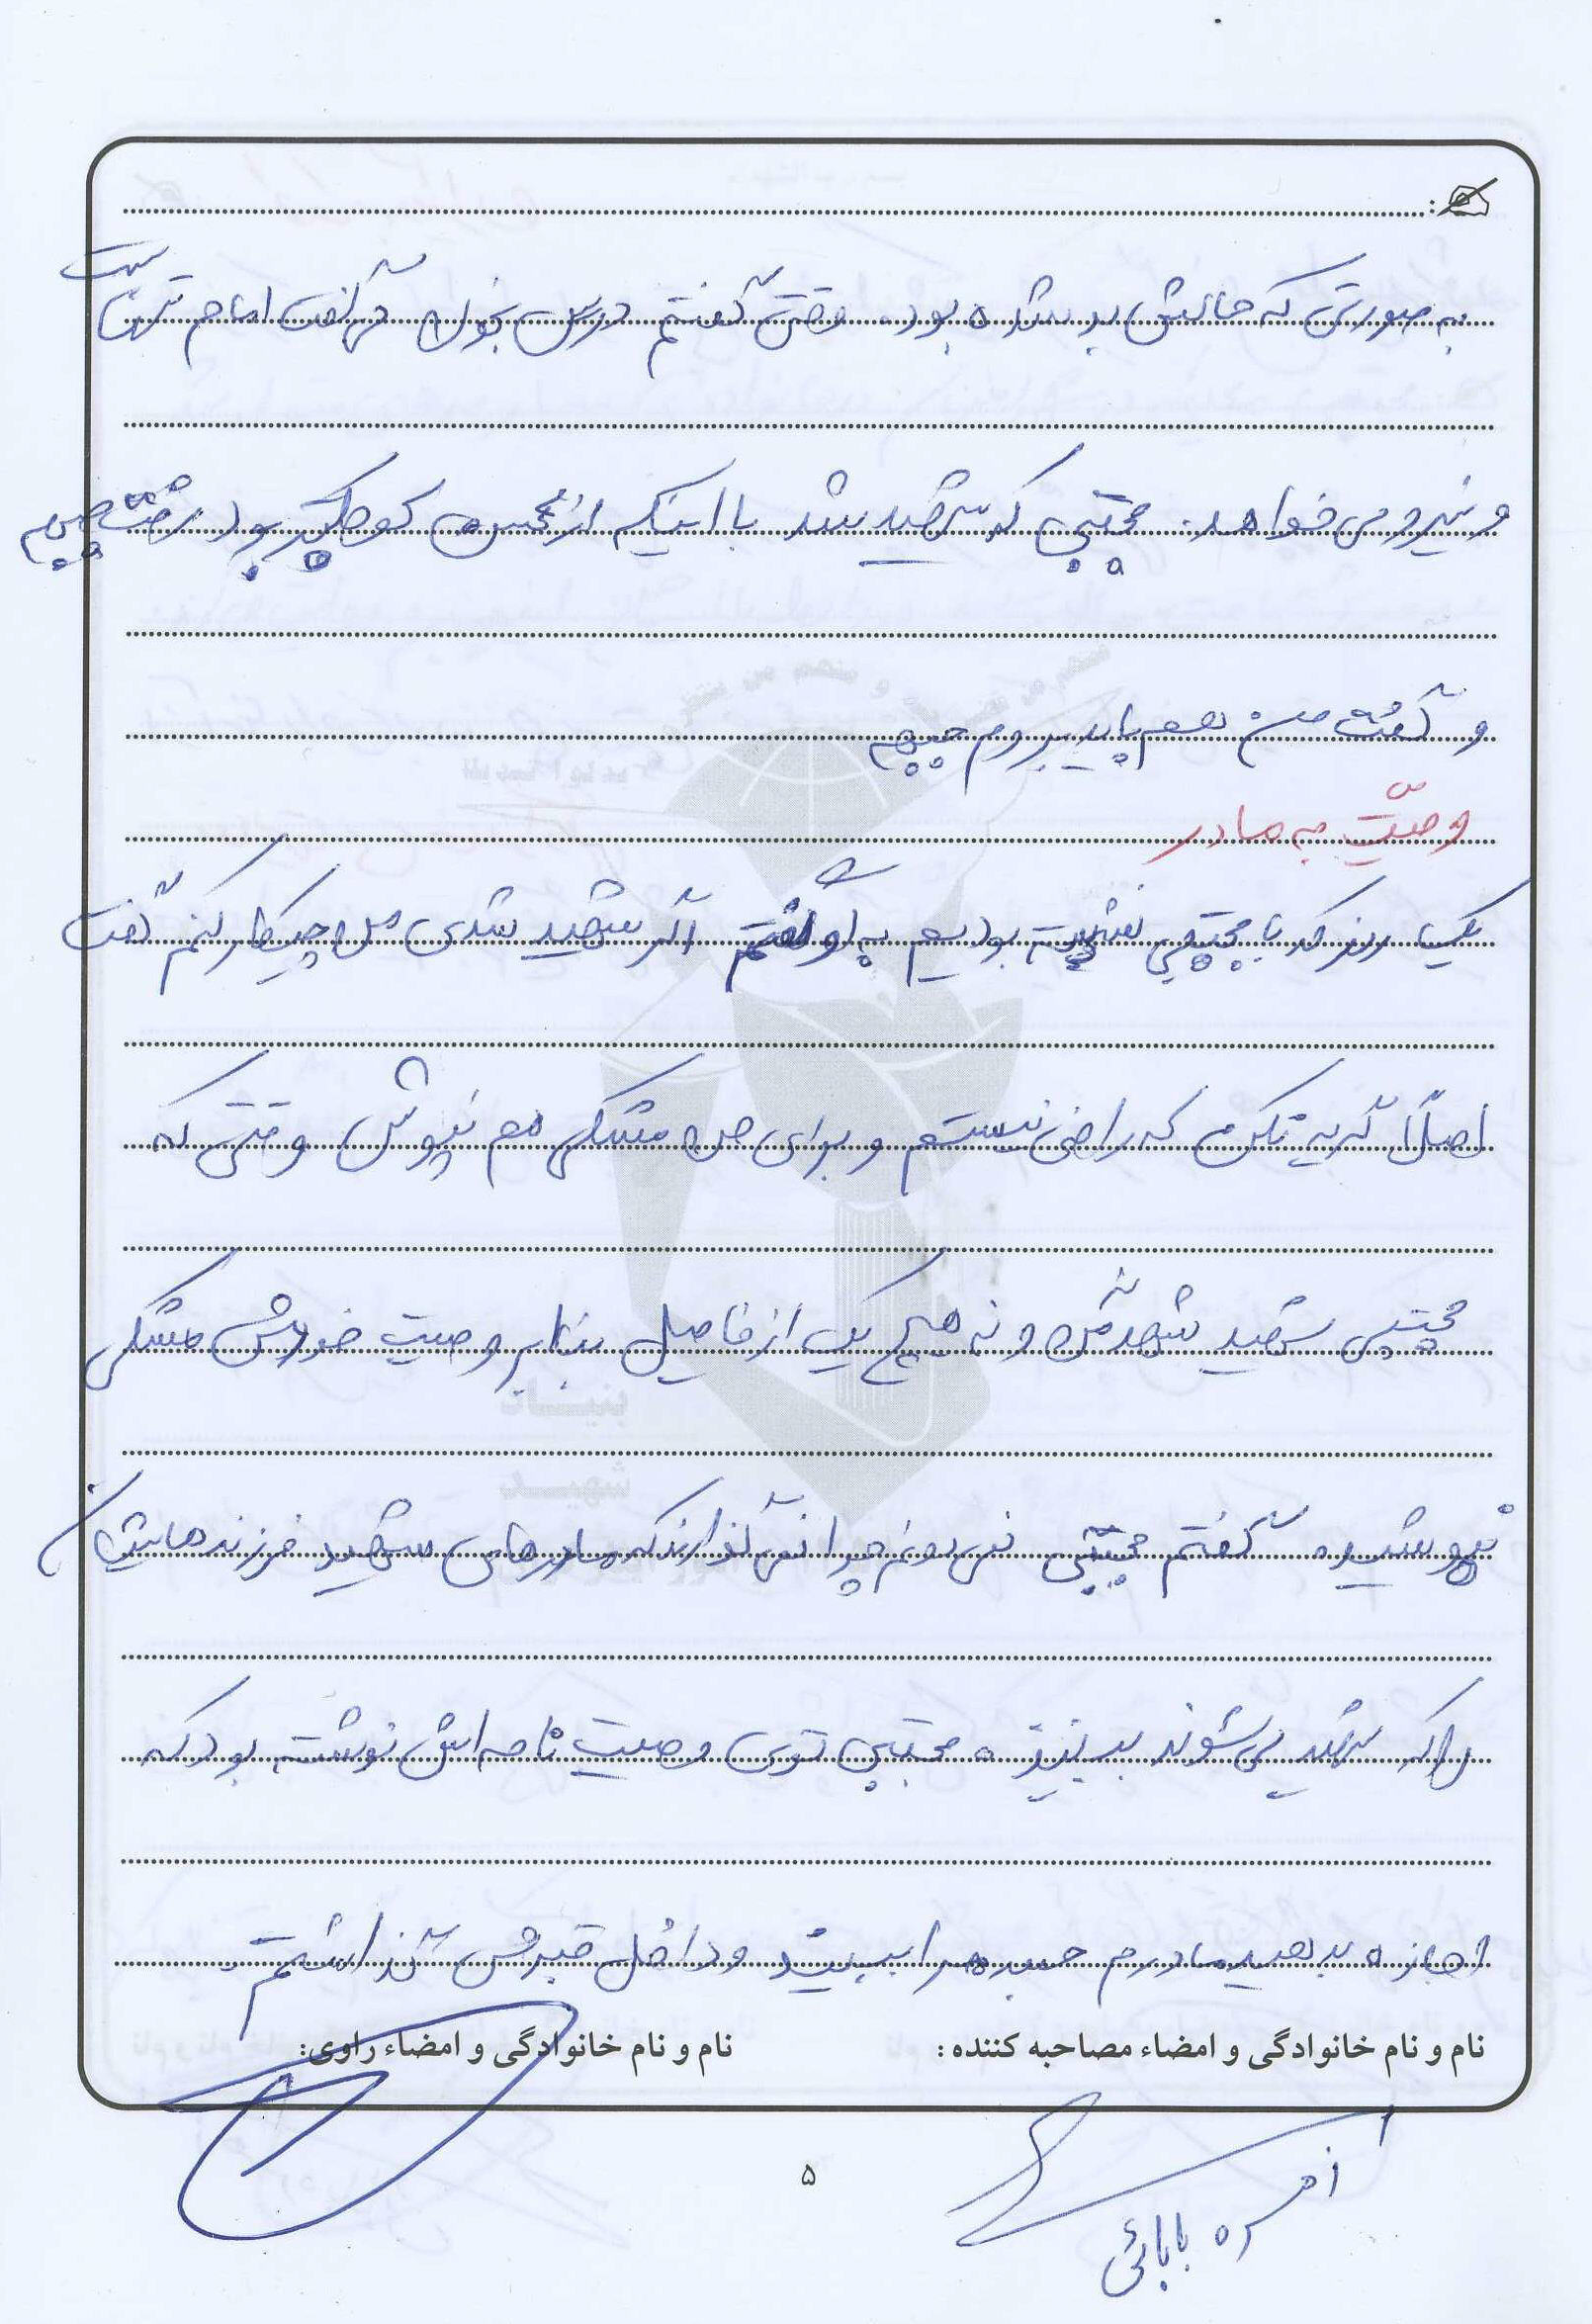 به صورتی که حالش بد شده بود. وقتی گفتم درس بخوان گفت امام تنهاست
و نیرو می خواهد. مجتبی که شهید شد با اینکه از محسن کوچکتر بود رفت جبهه
و گفت من هم باید بروم جبهه
وصیّت به مادر
یک روز که با مجتبی نشسته بودیم به او گفتم اگر شهید شدی من چیکار کنم گفت
اصلاً گریه نکن که راضی نیستم و برای من مشکی هم نپوش وقتی که
مجتبی شهید شد نه من و نه هیچ یک از فامیل بنابر وصیت خودش مشکی
نپوشیده. گفتم مجتبی نمی دونم چرا نمی گذارند که مادرهای شهید فرزندهایشان
را که شهید می شوند ببینند. مجتبی توی وصیت نامه اش نوشته بود که
اجازه بدهید مادرم جسدم را ببیند و داخل قبرش گذاشتم.
نام و نام خانوادگی و امضاء مصاحبه کننده :
نام و نام خانوادگی و امضاء راوی:
بابائی
۵